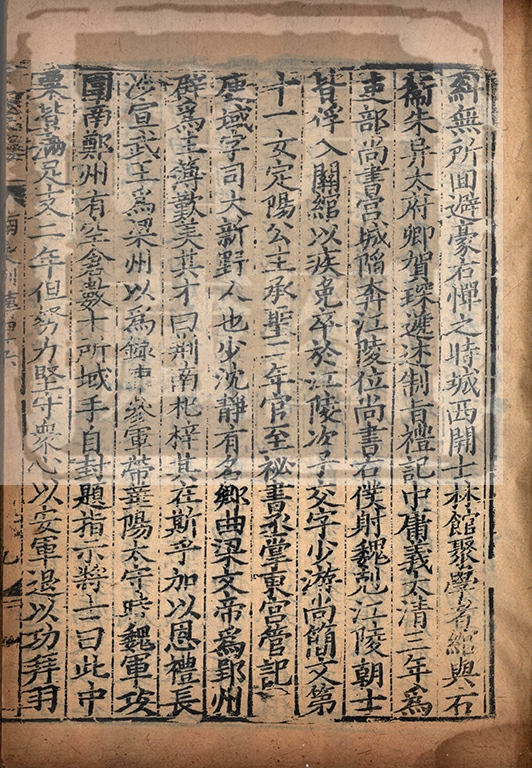 糾無所回避豪右憚之時城西開士林館聚學者綰與右
衛朱异太府卿賀琛遞述制旨禮記中庸義太清三年為
吏部尚書宮城陷奔江陵位尚書右僕射魏剋江陵朝士
皆俘入關綰以疾免卒於江陵次子交字少游尚簡文第
十一女定陽公主承聖二年官至祕書丞掌東宮管記
庾域字司大新野人也少沈靜有名鄉曲梁文帝為郢州
辟爲主簿歎美其才曰荆南杞梓其在斯乎加以恩禮長
沙宣武王爲梁州以爲録事參軍帶華陽太守時魏軍攻
圍南鄭州有空倉數十所域手自封題指示將士曰此中
粟皆滿足支二年但努力堅守衆心以安軍退以功拜羽